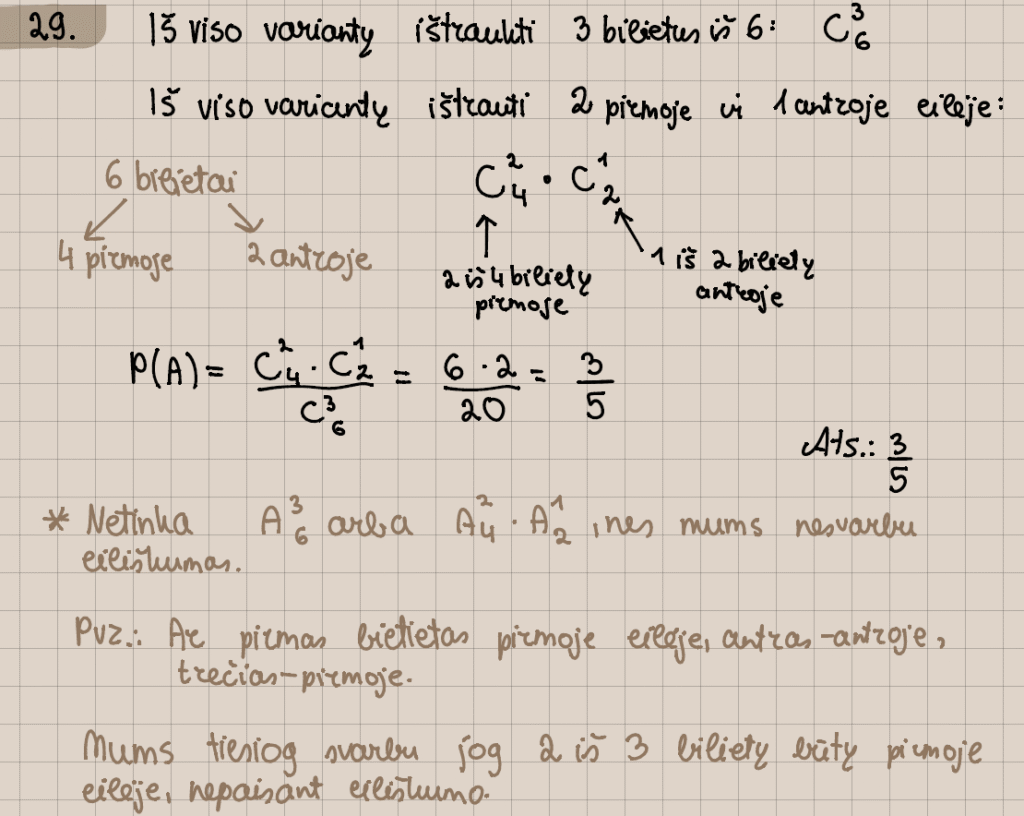 29. Iš viso variantų ištraukti 3 bilietus iš 6: C₆³
Iš viso variantų ištrauti 2 pirmoje ir 1 antroje eilėje:
6 bilietai
C₄² · C₂¹
4 pirmoje 2 antroje
2 iš 4 bilietų
pirmoje
1 iš 2 bilietų
antroje
P(A) = (C₄² · C₂¹)/C₆³ = (6 · 2)/20 = 3/5
Ats.: 3/5
* Netinka A₆³ arba A₄² · A₂¹, nes mums nesvarbu
eiliškumas.
Pvz.: Ar pirmas bietietas pirmoje eilėje, antras-antroje,
trečias-pirmoje.
Mums tiesiog svarbu jog 2 iš 3 bilietų būtų pirmoje
eilėje, nepaisant eiliškumo.